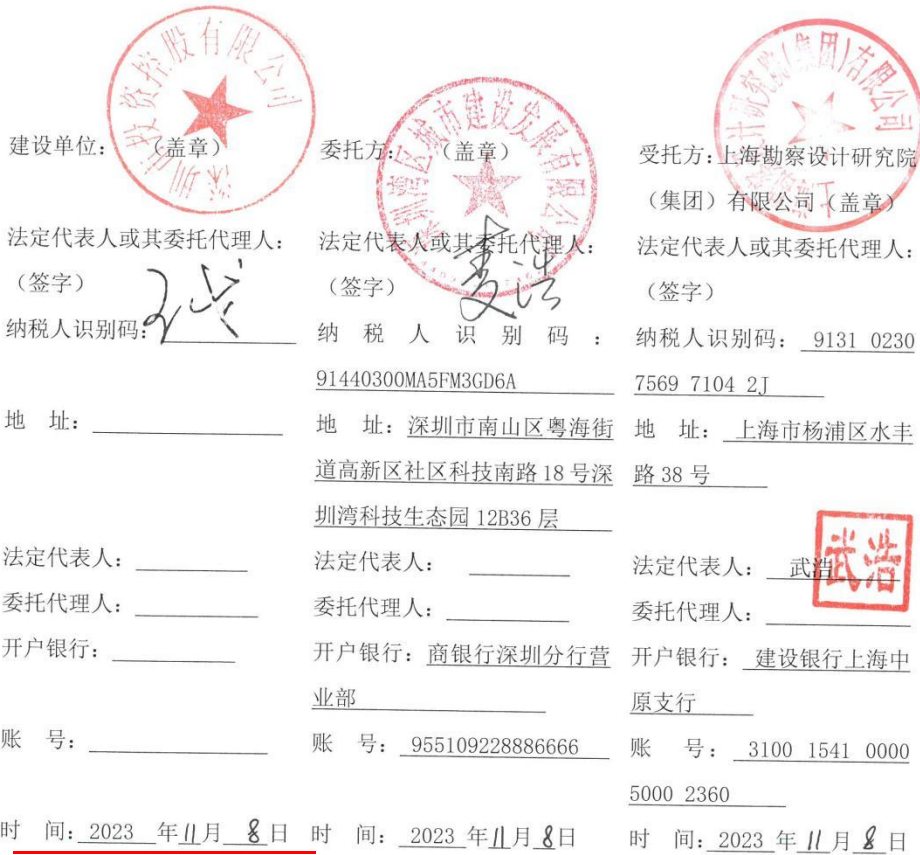 深圳市投资控股有限公司
建设单位： （盖章）
法定代表人或其委托代理人：
（签字）
纳税人识别码：
地 址：
法定代表人：
委托代理人：
开户银行：
账 号：
时 间：2023 年11月 8日
深圳湾区城市建设发展有限公司
委托方： （盖章）
法定代表人或其委托代理人：
（签字）
纳 税 人 识 别 码 ：
91440300MA5FM3GD6A
地 址：深圳市南山区粤海街
道高新区社区科技南路 18 号深
圳湾科技生态园 12B36 层
法定代表人：
委托代理人：
开户银行：商银行深圳分行营
业部
账 号： 955109228886666
时 间： 2023 年11月8日
计研究院(集团)有限公司
受托方：上海勘察设计研究院
（集团）有限公司（盖章）
法定代表人或其委托代理人：
（签字）
纳税人识别码： 9131 0230
7569 7104 2J
地 址： 上海市杨浦区水丰
路 38 号
法定代表人： 武浩
武浩
委托代理人：
开户银行： 建设银行上海中
原支行
账 号： 3100 1541 0000
5000 2360
时 间：2023 年 11 月 8 日